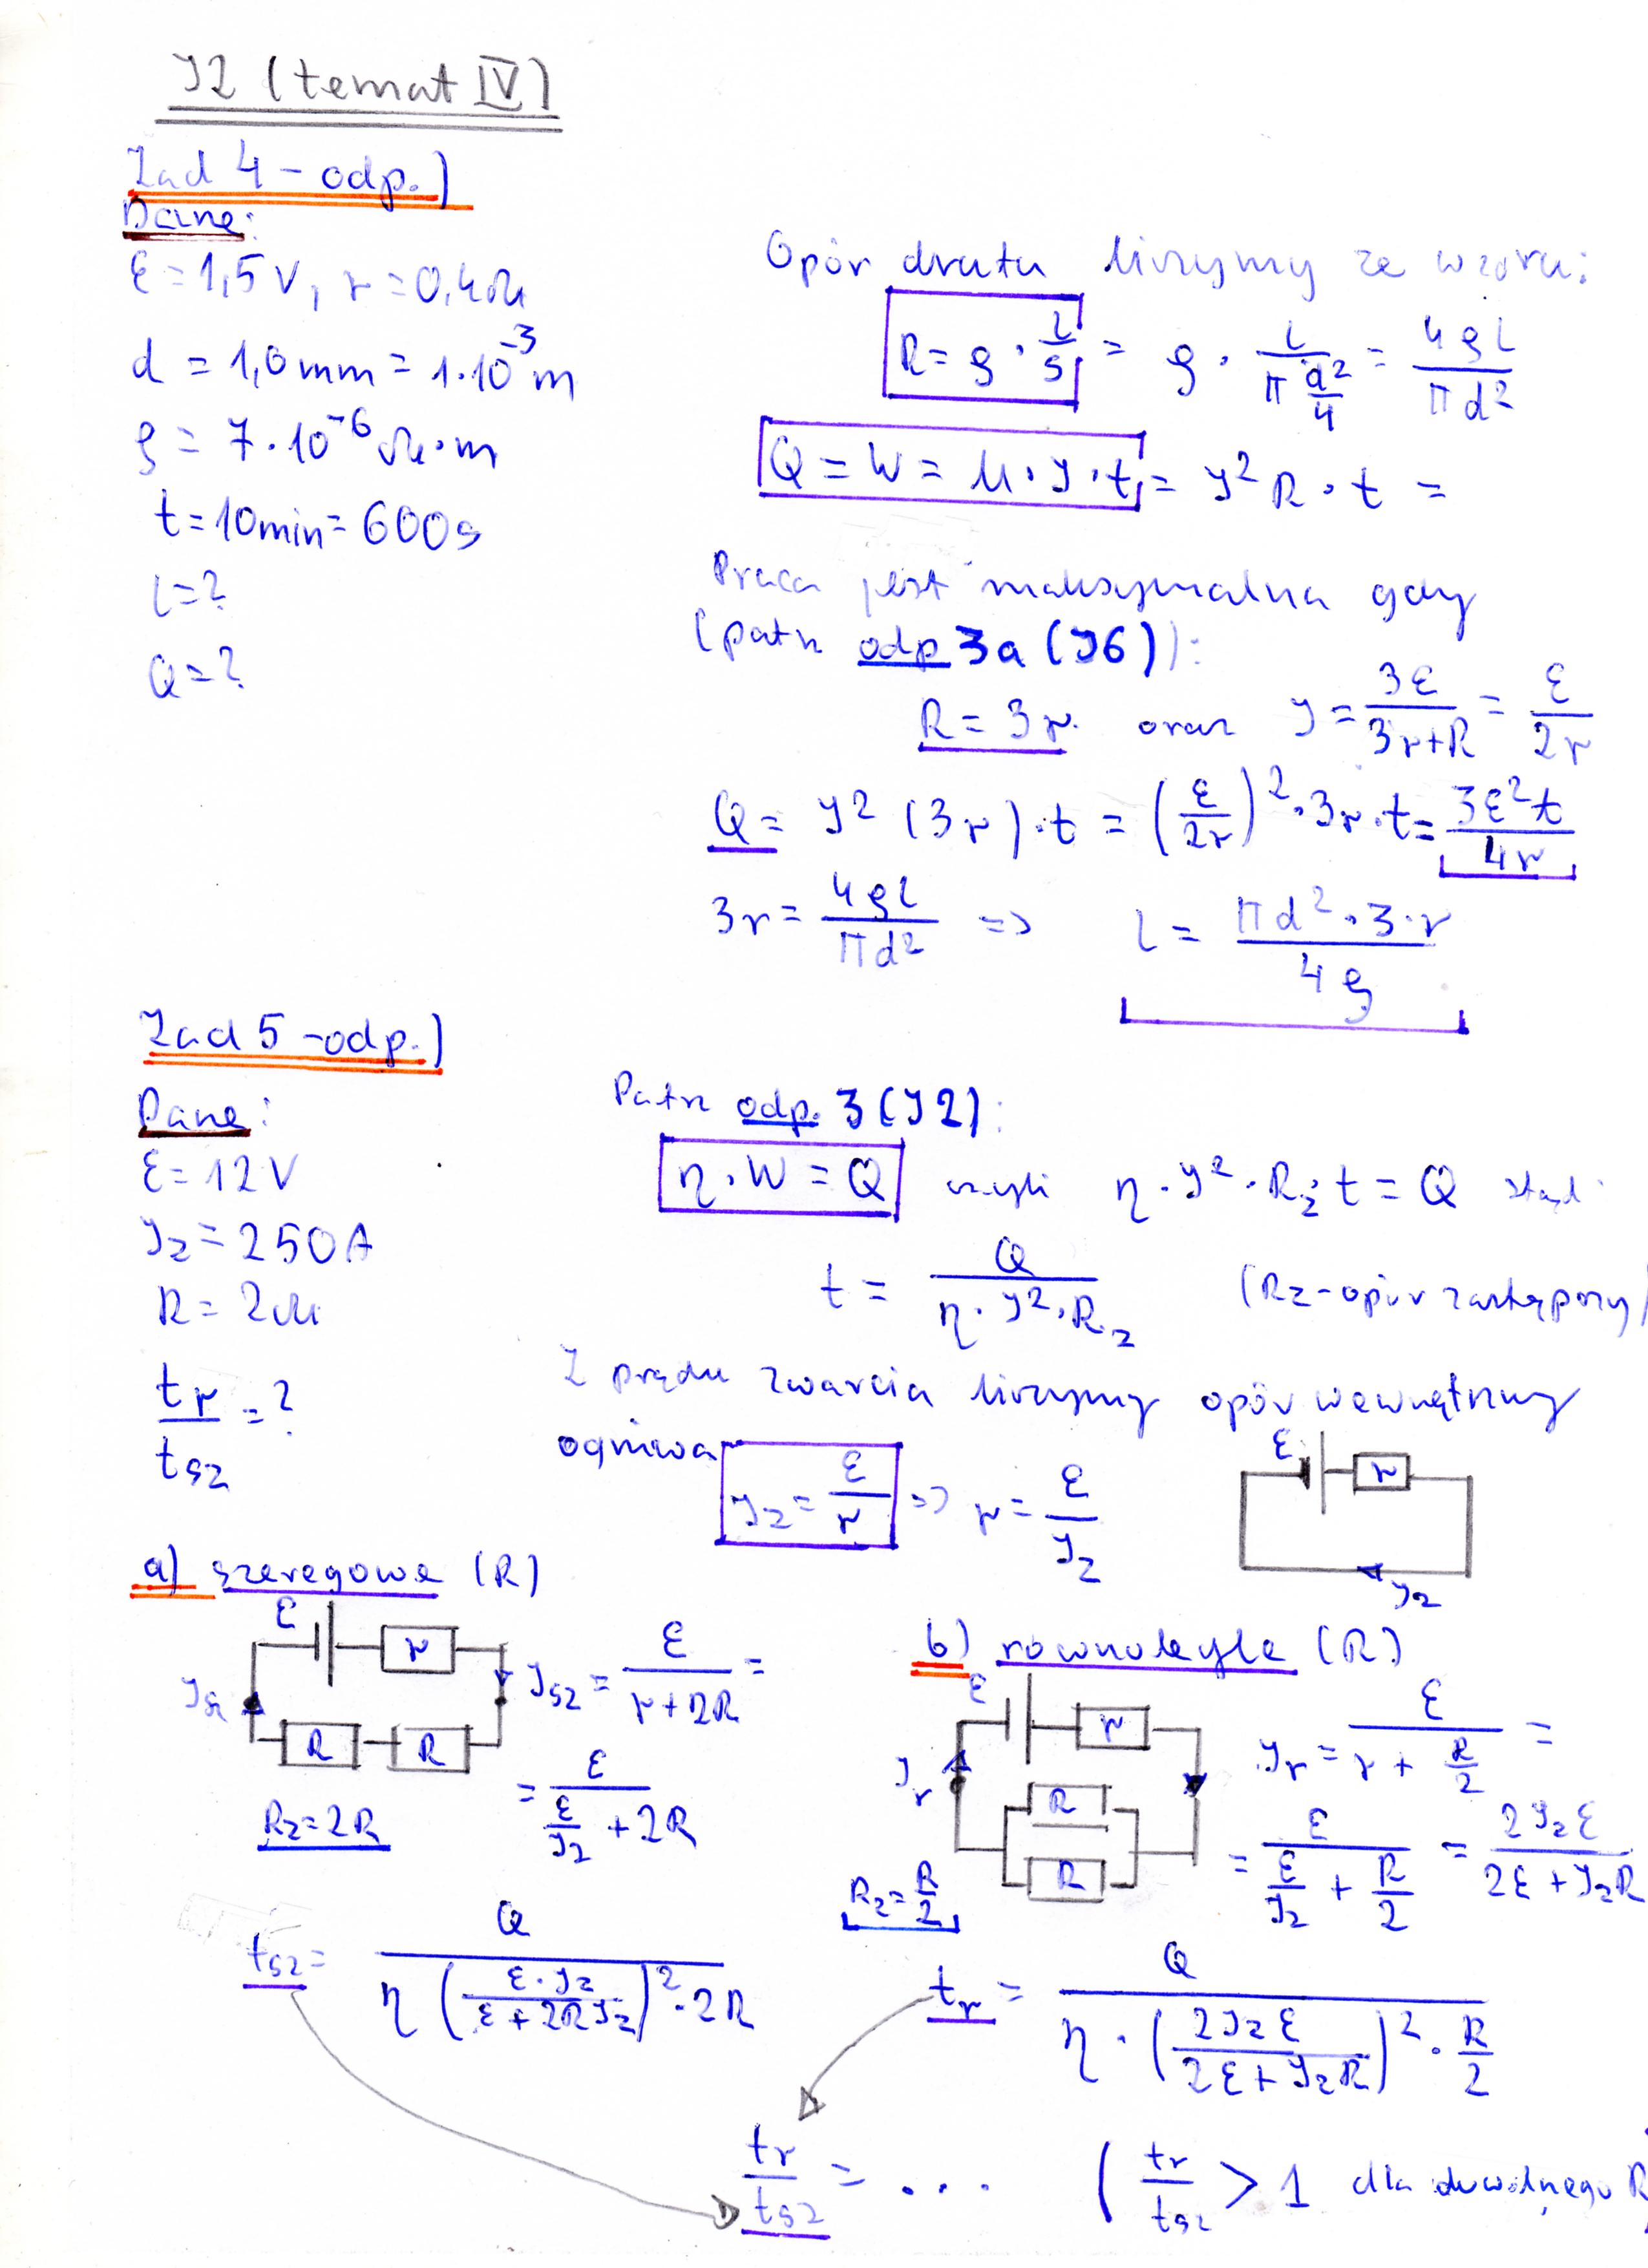 J2 (temat IV)
Zad 4 - odp.)
Dane:
ε = 1,5 V, r = 0,4 Ω
d = 1,0 mm = 1·10⁻³ m
ρ = 7·10⁻⁶ Ω·m
t = 10 min = 600 s
l = ?
Q = ?
Opór drutu liczymy ze wzoru:
R = ρ · l/S = ρ · l/(π d²/4) = 4ρl/(πd²)
Q = W = U·J·t = J²R·t =
Praca jest maksymalna gdy
(patrz odp 3a (J6)):
R = 3r oraz J = 3ε/(3r+R) = ε/2r
Q = J² (3r)·t = (ε/2r)²·3r·t = 3ε²t/4r
3r = 4ρl/(πd²) => l = πd²·3·r/4ρ
Zad 5 - odp.)
Dane:
ε = 12 V
Jz = 250 A
R = 2 Ω
tr/tsz = ?
Patrz odp. 3 (J2):
η·W = Q czyli η·J²·Rz·t = Q stąd
t = Q/(η·J²·Rz) (Rz - opór zastępczy)
Z prądu zwarcia liczymy opór wewnętrzny
ogniwa Jz = ε/r => r = ε/Jz
ε r
Jz
a) szeregowe (R)
ε r
Jsz
R R
Rz = 2R
Jsz = ε/(r+2R) =
= ε/(ε/Jz + 2R)
tsz = Q/(η (ε·Jz/(ε+2RJz))²·2R)
b) równoległe (R)
ε r
Jr
R
R
Rz = R/2
Jr = ε/(r + R/2) =
= ε/(ε/Jz + R/2) = 2Jzε/(2ε+JzR)
tr = Q/(η·(2Jzε/(2ε+JzR))²·R/2)
tr/tsz = ... (tr/tsz > 1 dla dowolnego R